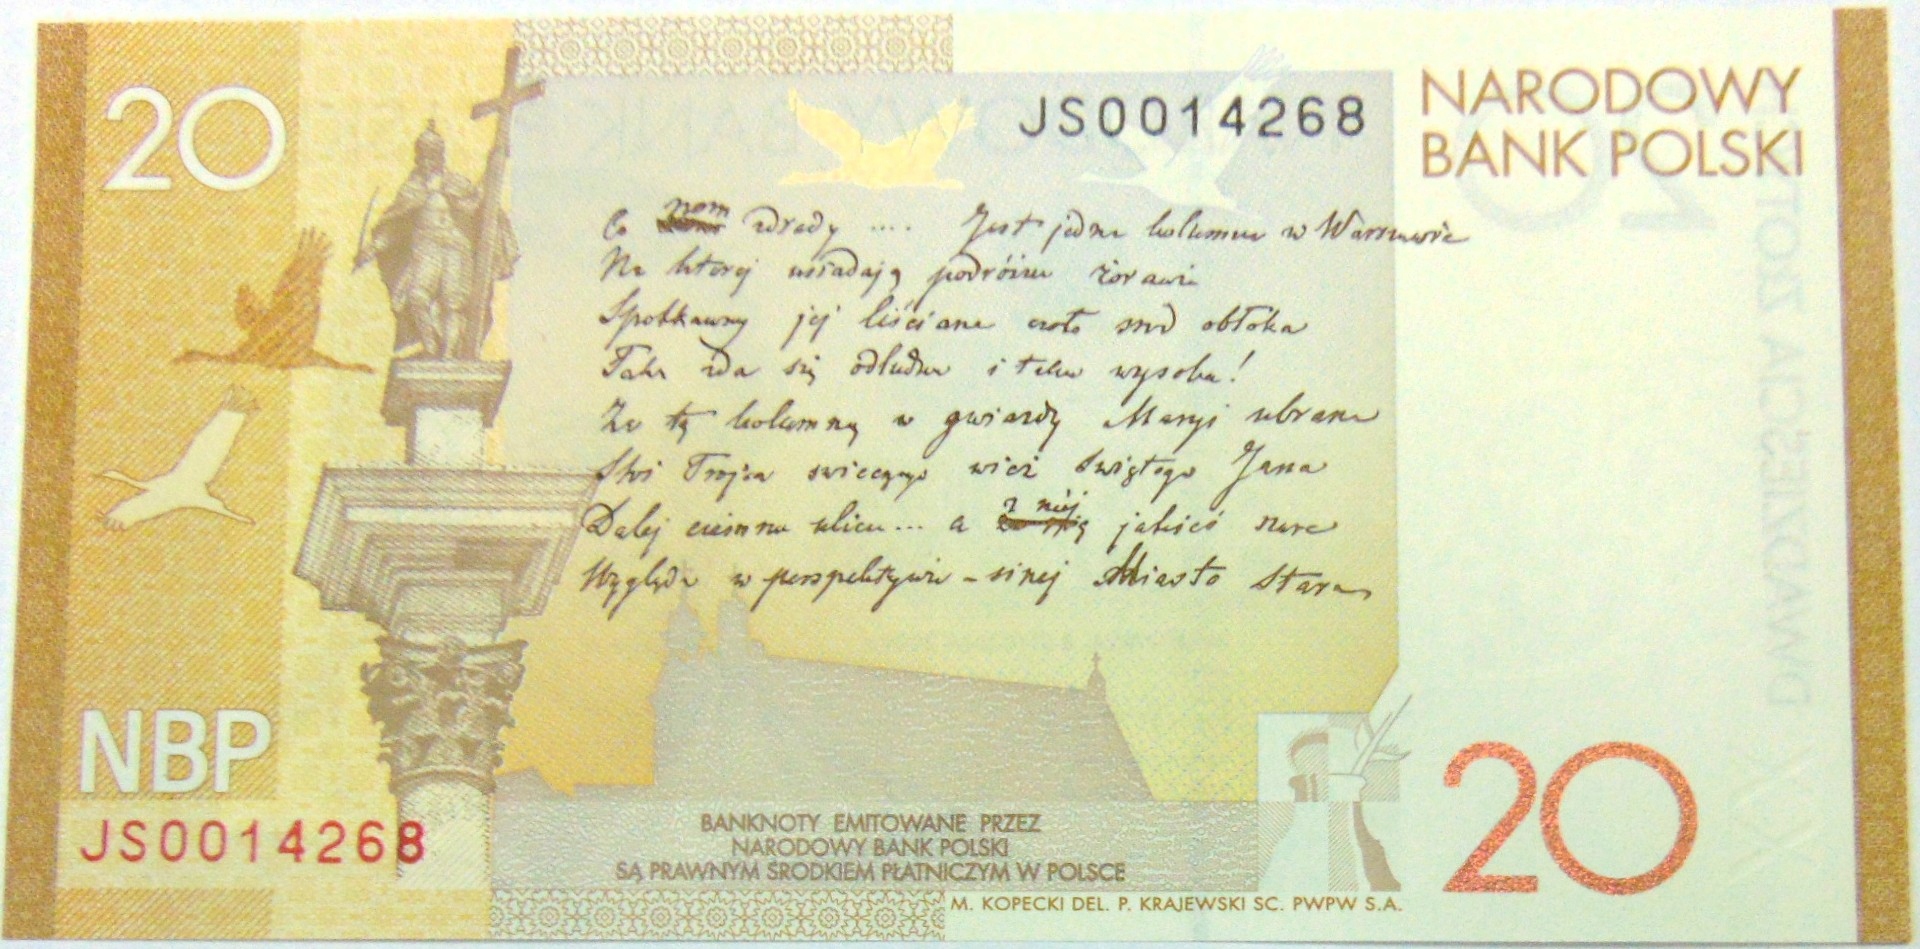 20
JS0014268
NARODOWY
BANK POLSKI
Co nam zdrady .... Jest jedna kolumna w Warszawie
Na ktorej usiadają podróżne żorawie
Spotkawszy jej liściane czoło śród obłoka
Taka zda się odludna i taka wysoka!
Za tą kolumną w gwiazdy Maryi ubrana
Stoi Trójca swiecącego wież Świętego Jana
Dalej ciemna ulica... a z niej jakieś szare
Wygląda w perspektywie - sinej Miasto Stare
NBP
JS0014268
BANKNOTY EMITOWANE PRZEZ
NARODOWY BANK POLSKI
SĄ PRAWNYM ŚRODKIEM PŁATNICZYM W POLSCE
M. KOPECKI DEL. P. KRAJEWSKI SC. PWPW S.A.
20